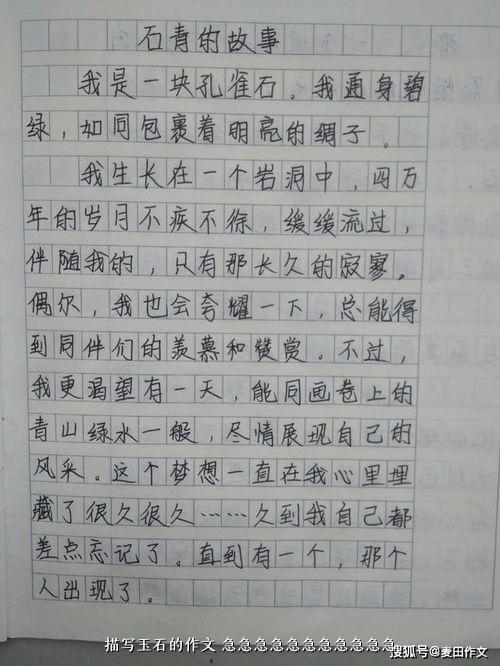 石青的故事
我是一块孔雀石。我通身碧
绿,如同包裹着明亮的绸子。
我生长在一个岩洞中,四万
年的岁月不疾不徐,缓缓流过,
伴随我的,只有那长久的寂寥。
偶尔,我也会夸耀一下,总能得
到同伴们的羡慕和赞赏。不过,
我更渴望有一天,能同画卷上的
青山绿水一般,尽情展现自己的
风采。这个梦想一直在我心里埋
藏了很久很久……久到我自己都
差点忘记了。直到有一个,那个
人出现了。
描写玉石的作文 急急急急急急急急急急急
搜狐号@麦田作文